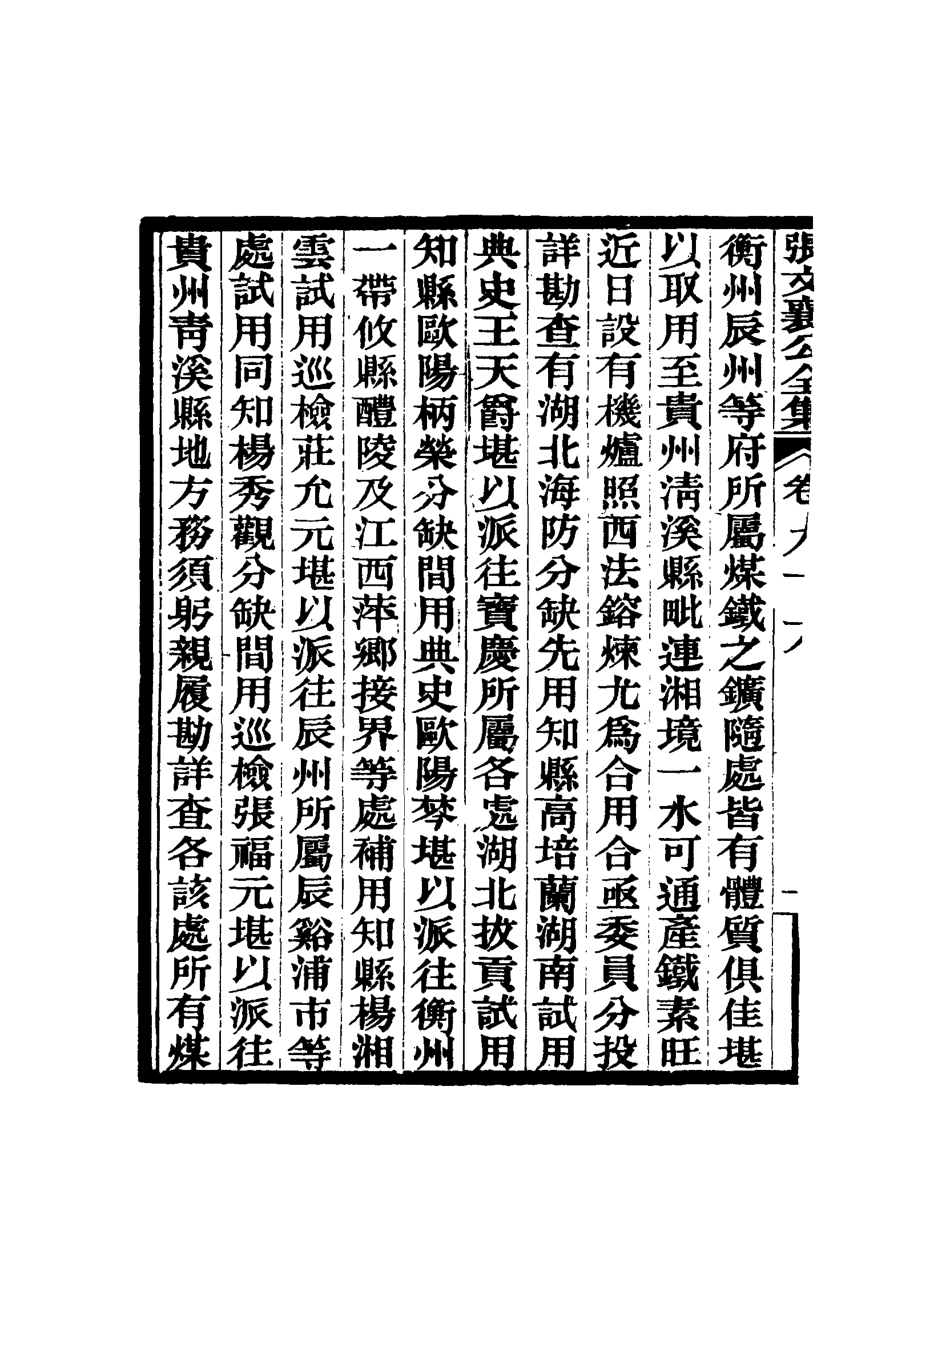 張文襄公全集 卷九十六 一
衡州辰州等府所屬煤鐵之鑛隨處皆有體質俱佳堪
以取用至貴州淸溪縣毗連湘境一水可通產鐵素旺
近日設有機爐照西法鎔煉尤爲合用合亟委員分投
詳勘查有湖北海防分缺先用知縣高培蘭湖南試用
典史王天爵堪以派往寶慶所屬各處湖北拔貢試用
知縣歐陽柄榮分缺間用典史歐陽棽堪以派往衡州
一帶攸縣醴陵及江西萍鄉接界等處補用知縣楊湘
雲試用巡檢莊允元堪以派往辰州所屬辰谿浦市等
處試用同知楊秀觀分缺間用巡檢張福元堪以派往
貴州靑溪縣地方務須躬親履勘詳查各該處所有煤